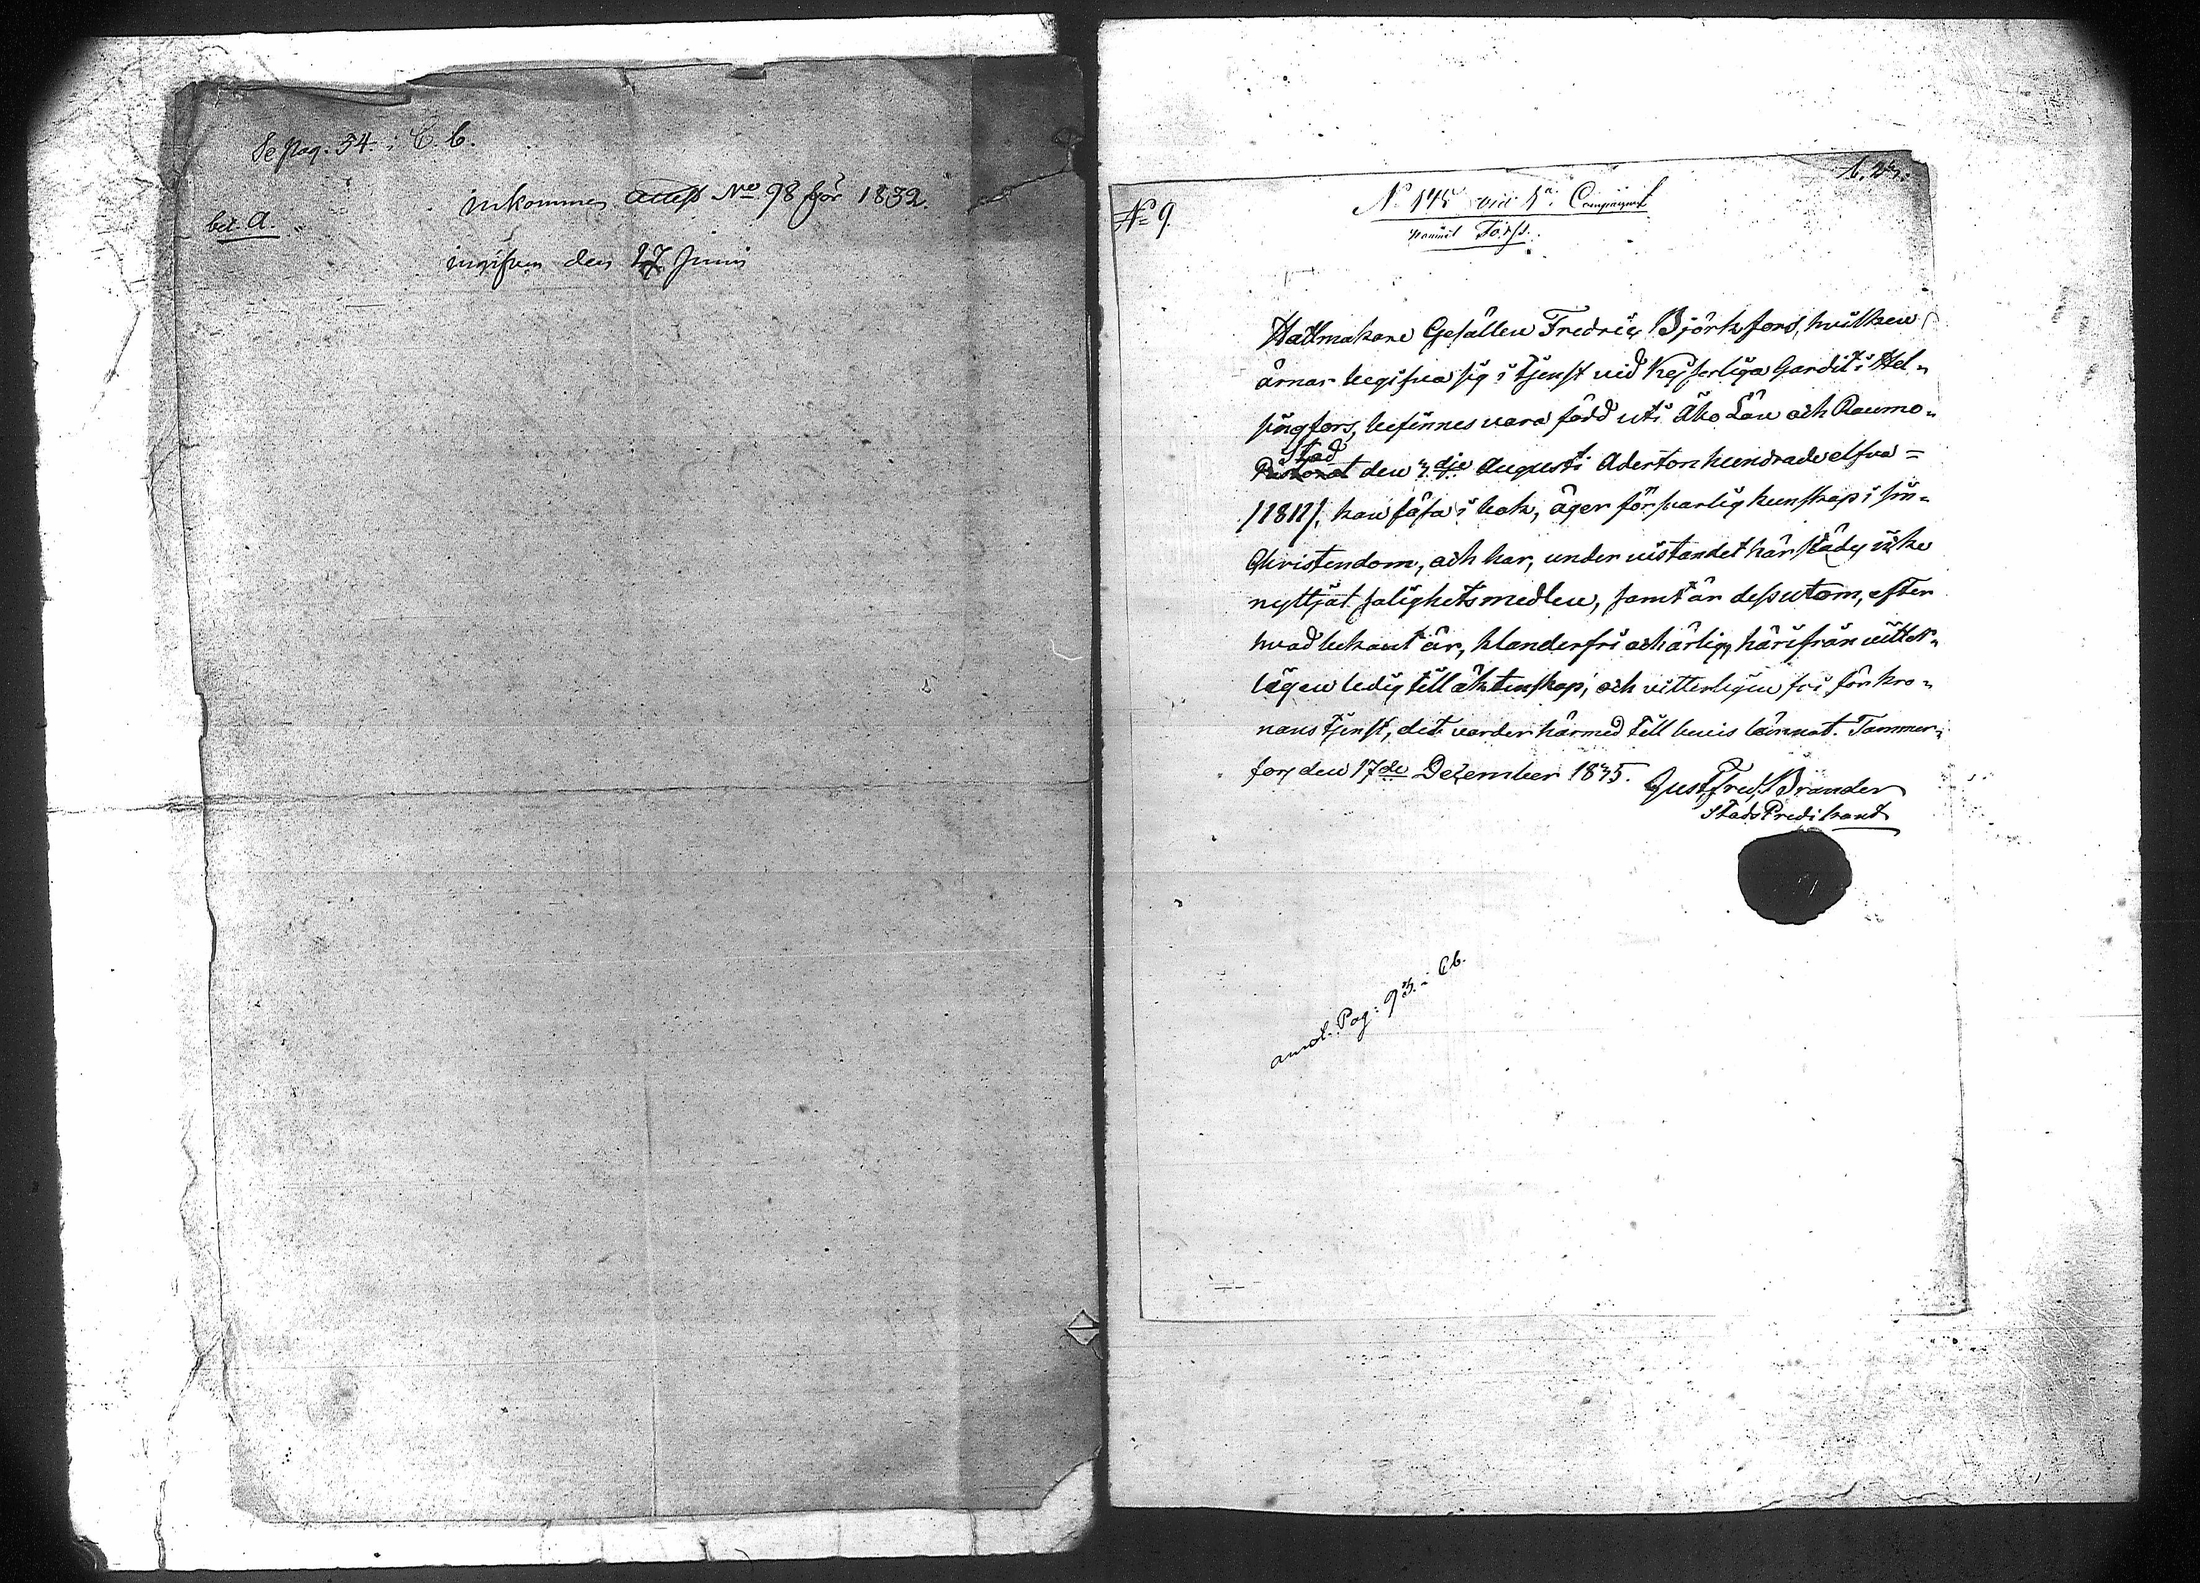 Se pag. 34. i C. b.
inkommen attest No 98 för 1832.
bil. A.
ingifven den 27 Junii
N 145 vid 1a Compagniet
namnet Forss.
No 9.
Hattmakare Gesällen Fredric Björkfors, hvilken
ärnar begifva sig i tjenst vid Kejserliga Gardet i Hel-
singfors, befinnes vara född uti Åbo Län och Raumo-
Stad
Pastorat den 3dje Augusti Adertonhundradeelfva =
/1811/, kan läsa i bok, äger försvarlig kunskap i sin
Christendom, och har, under vistandet härstädes icke
nyttjat salighetsmedlen, samt är dessutom, efter
hvad bekant är, klanderfri och ärlig, härifrån vitter-
ligen ledig till äktenskap, och vitterligen fri för kro-
nans tjenst, det varder härmed till bevis lämnat. Tammer-
fors den 17de December 1835.
Gust. Fred. Brander
StadsPredikant
anot. Pag: 93. i Cb.